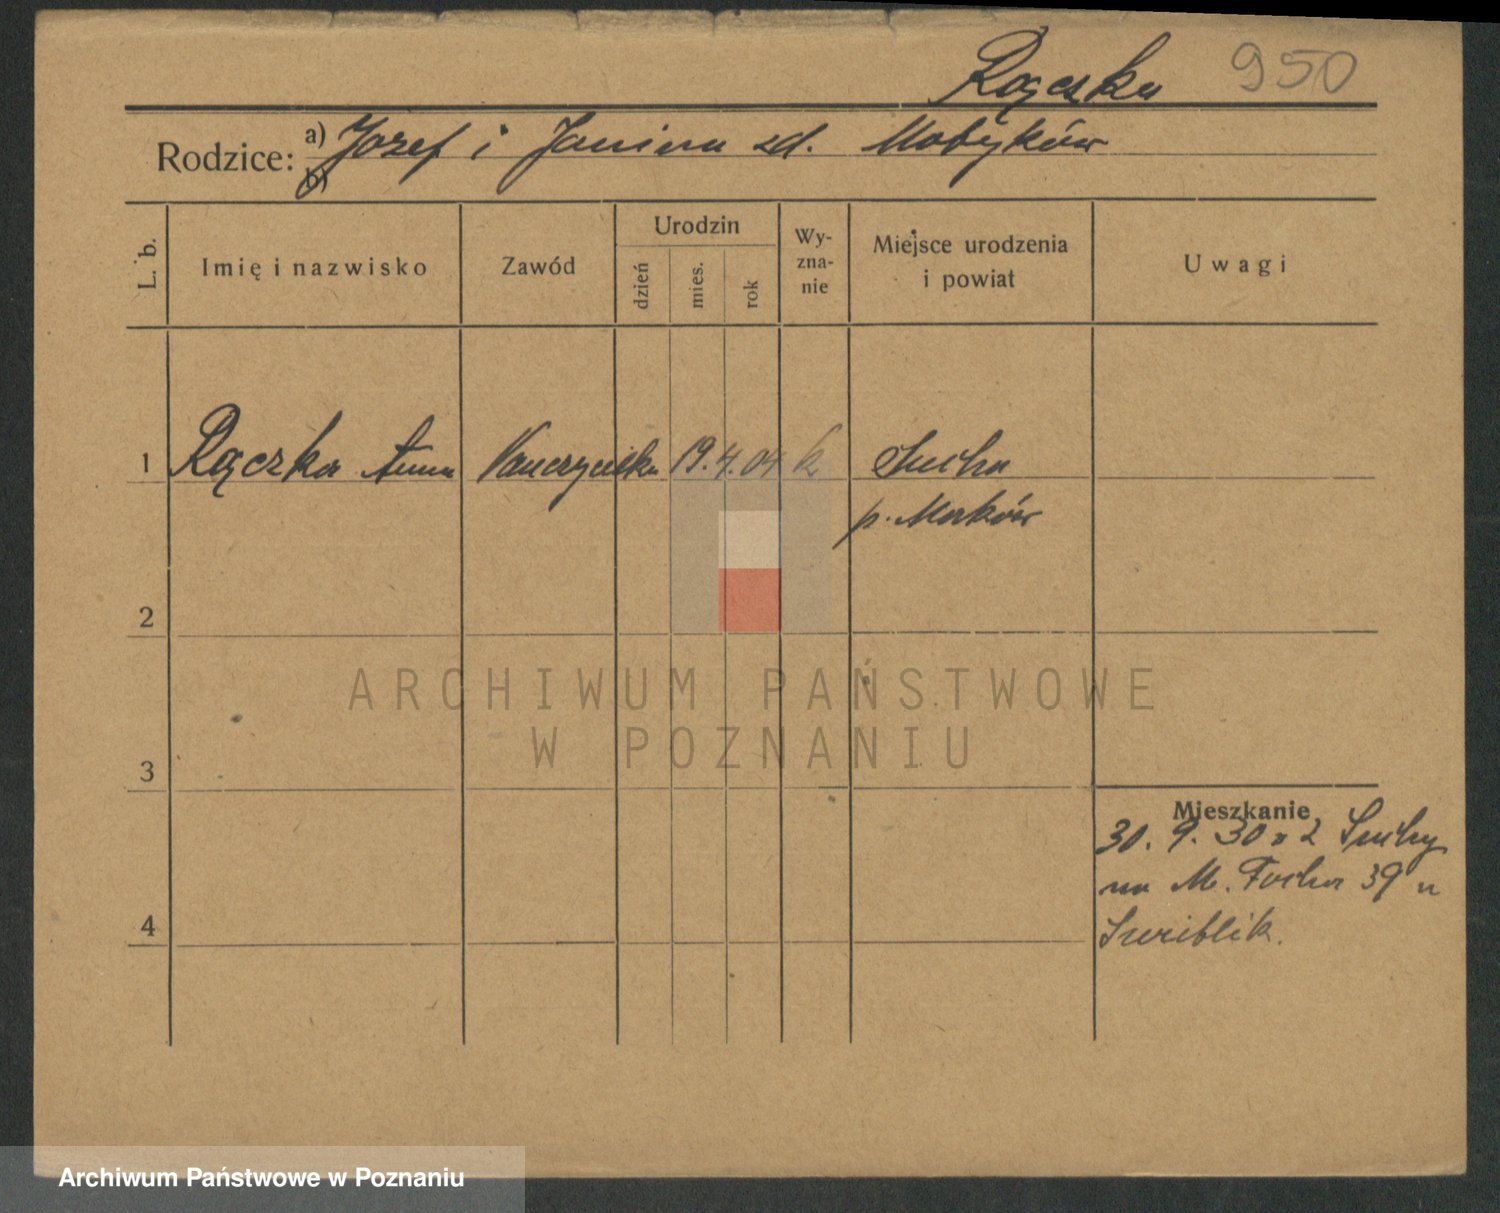 Rączka 950
Rodzice: a) Józef i Janina zd. Motyków
b)
L. b.
Imię i nazwisko
Zawód
Urodzin
dzień
mies.
rok
Wy-
zna-
nie
Miejsce urodzenia
i powiat
Uwagi
1 Rączka Anna Nauczycielka 19. 4. 04 k Sucha
p. Maków
2
3
4
Mieszkanie
30. 9. 30 z Suchy
na M. Focha 39 u
ARCHIWUM PAŃSTWOWE
W POZNANIU
Archiwum Państwowe w Poznaniu